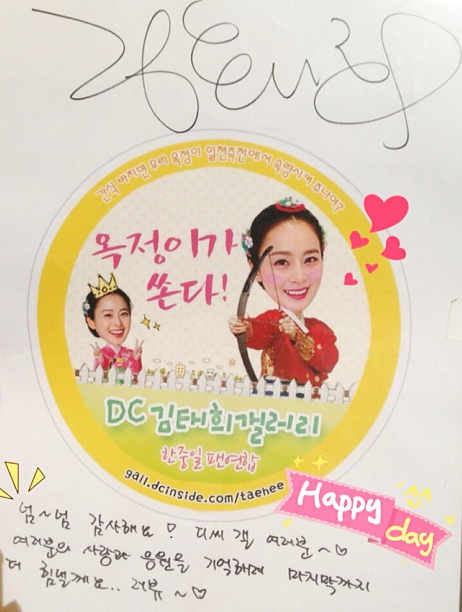 김태희
간식 바치면 우리 옥정이 일편죽전에서 숙명시켜 주나여?
옥정이가
쏜다!
DC 김태희갤러리
한중일 팬연합
gall.dcinside.com/taehee
Happy
day
넘~넘 감사해요! 디씨 갤 여러분~♡
여러분의 사랑과 응원을 기억하며 마지막까지
더 힘낼께요.. 러뷰~♡